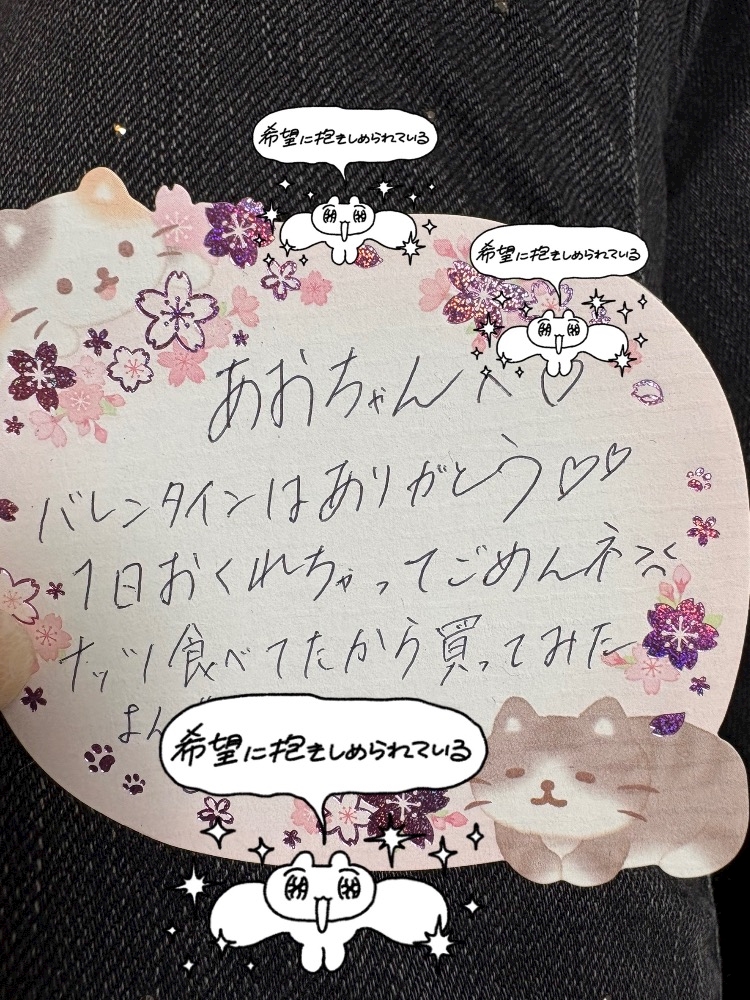 希望に抱きしめられている
希望に抱きしめられている
あおちゃんへ♡
バレンタインはありがとう♡♡
1日おくれちゃってごめんネ
ナッツ食べてたから買ってみた
よん
希望に抱きしめられている